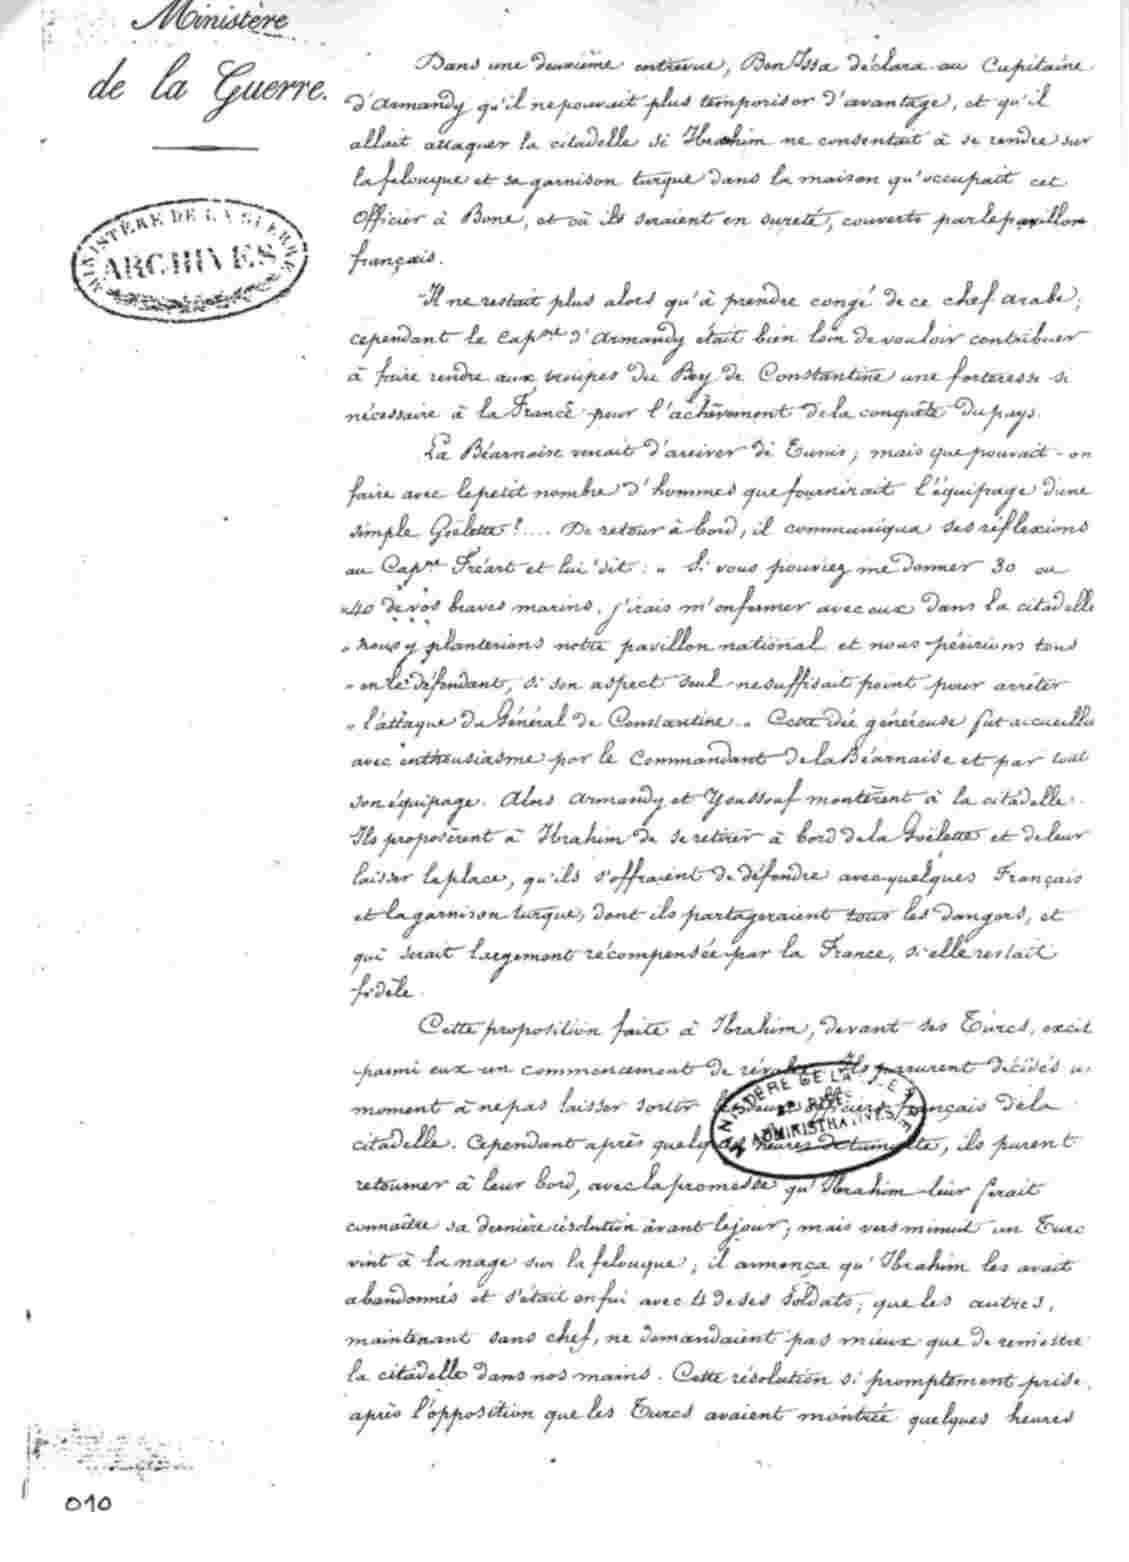 Ministère
de la Guerre.
MINISTÈRE DE LA GUERRE
ARCHIVES
Dans une deuxième entrevue, Ben Issa déclara au Capitaine
d'Armandy qu'il ne pouvait plus temporiser d'avantage, et qu'il
allait attaquer la citadelle si Ibrahim ne consentait à se rendre sur
la felouque et sa garnison turque dans la maison qu'occupait cet
Officier à Bone, et où ils seraient en sureté, couverts par le pavillon
français.
Il ne restait plus alors qu'à prendre congé de ce chef arabe;
cependant le Cap.ne d'Armandy était bien loin de vouloir contribuer
à faire rendre aux troupes du Bey de Constantine une forteresse si
nécessaire à la France pour l'achèvement de la conquête du pays.
La Béarnaise venait d'arriver de Tunis; mais que pouvait-on
faire avec le petit nombre d'hommes que fournirait l'équipage d'une
simple Goëlette?.... De retour à bord, il communiqua ses réflexions
au Cap.ne Fréart et lui dit: " Si vous pouviez me donner 30 ou
" 40 de vos braves marins, j'irais m'enfermer avec eux dans la citadelle
" nous y planterions notre pavillon national et nous péririons tous
" en le défendant, si son aspect seul ne suffisait point pour arrêter
" l'attaque du Général de Constantine." Cette idée généreuse fut accueillie
avec enthousiasme par le Commandant de la Béarnaise et par tout
son équipage. Alors Armandy et Youssouf montèrent à la citadelle.
Ils proposèrent à Ibrahim de se retirer à bord de la Goëlette et de leur
laisser la place, qu'ils s'offraient de défendre avec quelques Français
et la garnison turque, dont ils partageraient tous les dangers, et
qui serait largement récompensée par la France, si elle restait
fidèle.
Cette proposition faite à Ibrahim, devant ses Turcs, excit
parmi eux un commencement de révolte. Ils parurent décidés u
moment à ne pas laisser sortir les deux officiers français de la
citadelle. Cependant après quelques heures de tumulte, ils purent
retourner à leur bord, avec la promesse qu'Ibrahim leur ferait
connaître sa dernière résolution avant le jour; mais vers minuit un Turc
vint à la nage sur la felouque; il annonça qu'Ibrahim les avait
abandonnés et s'était enfui avec 4 de ses soldats; que les autres,
maintenant sans chef, ne demandaient pas mieux que de remettre
la citadelle dans nos mains. Cette résolution si promptement prise,
après l'opposition que les Turcs avaient montrée quelques heures
MINISTÈRE DE LA GUERRE
ARCHIVES
ADMINISTRATIVES
010